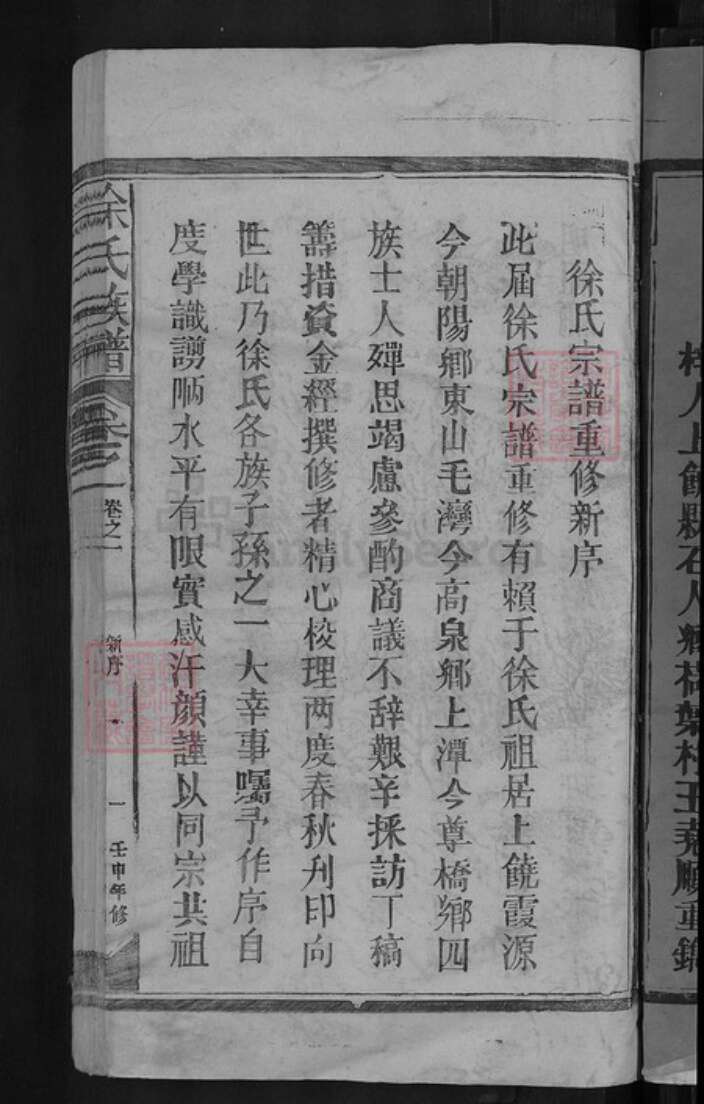 梓人上饒縣石人鄉橋葉村王堯順重鐫
徐氏宗譜重修新序
此屆徐氏宗譜重修有賴于徐氏祖居上饒霞源
今朝陽鄉東山毛灣今高泉鄉上潭今尊橋鄉四
族士人殫思竭慮參酌商議不辞艱辛採訪丁稿
籌措資金經撰修者精心校理两度春秋刋印向
世此乃徐氏各族子孫之一大幸事囑予作序自
度學識謭陋水平有限實感汗顔謹以同宗共祖
徐氏族譜
卷之一
新序
一
壬申年修